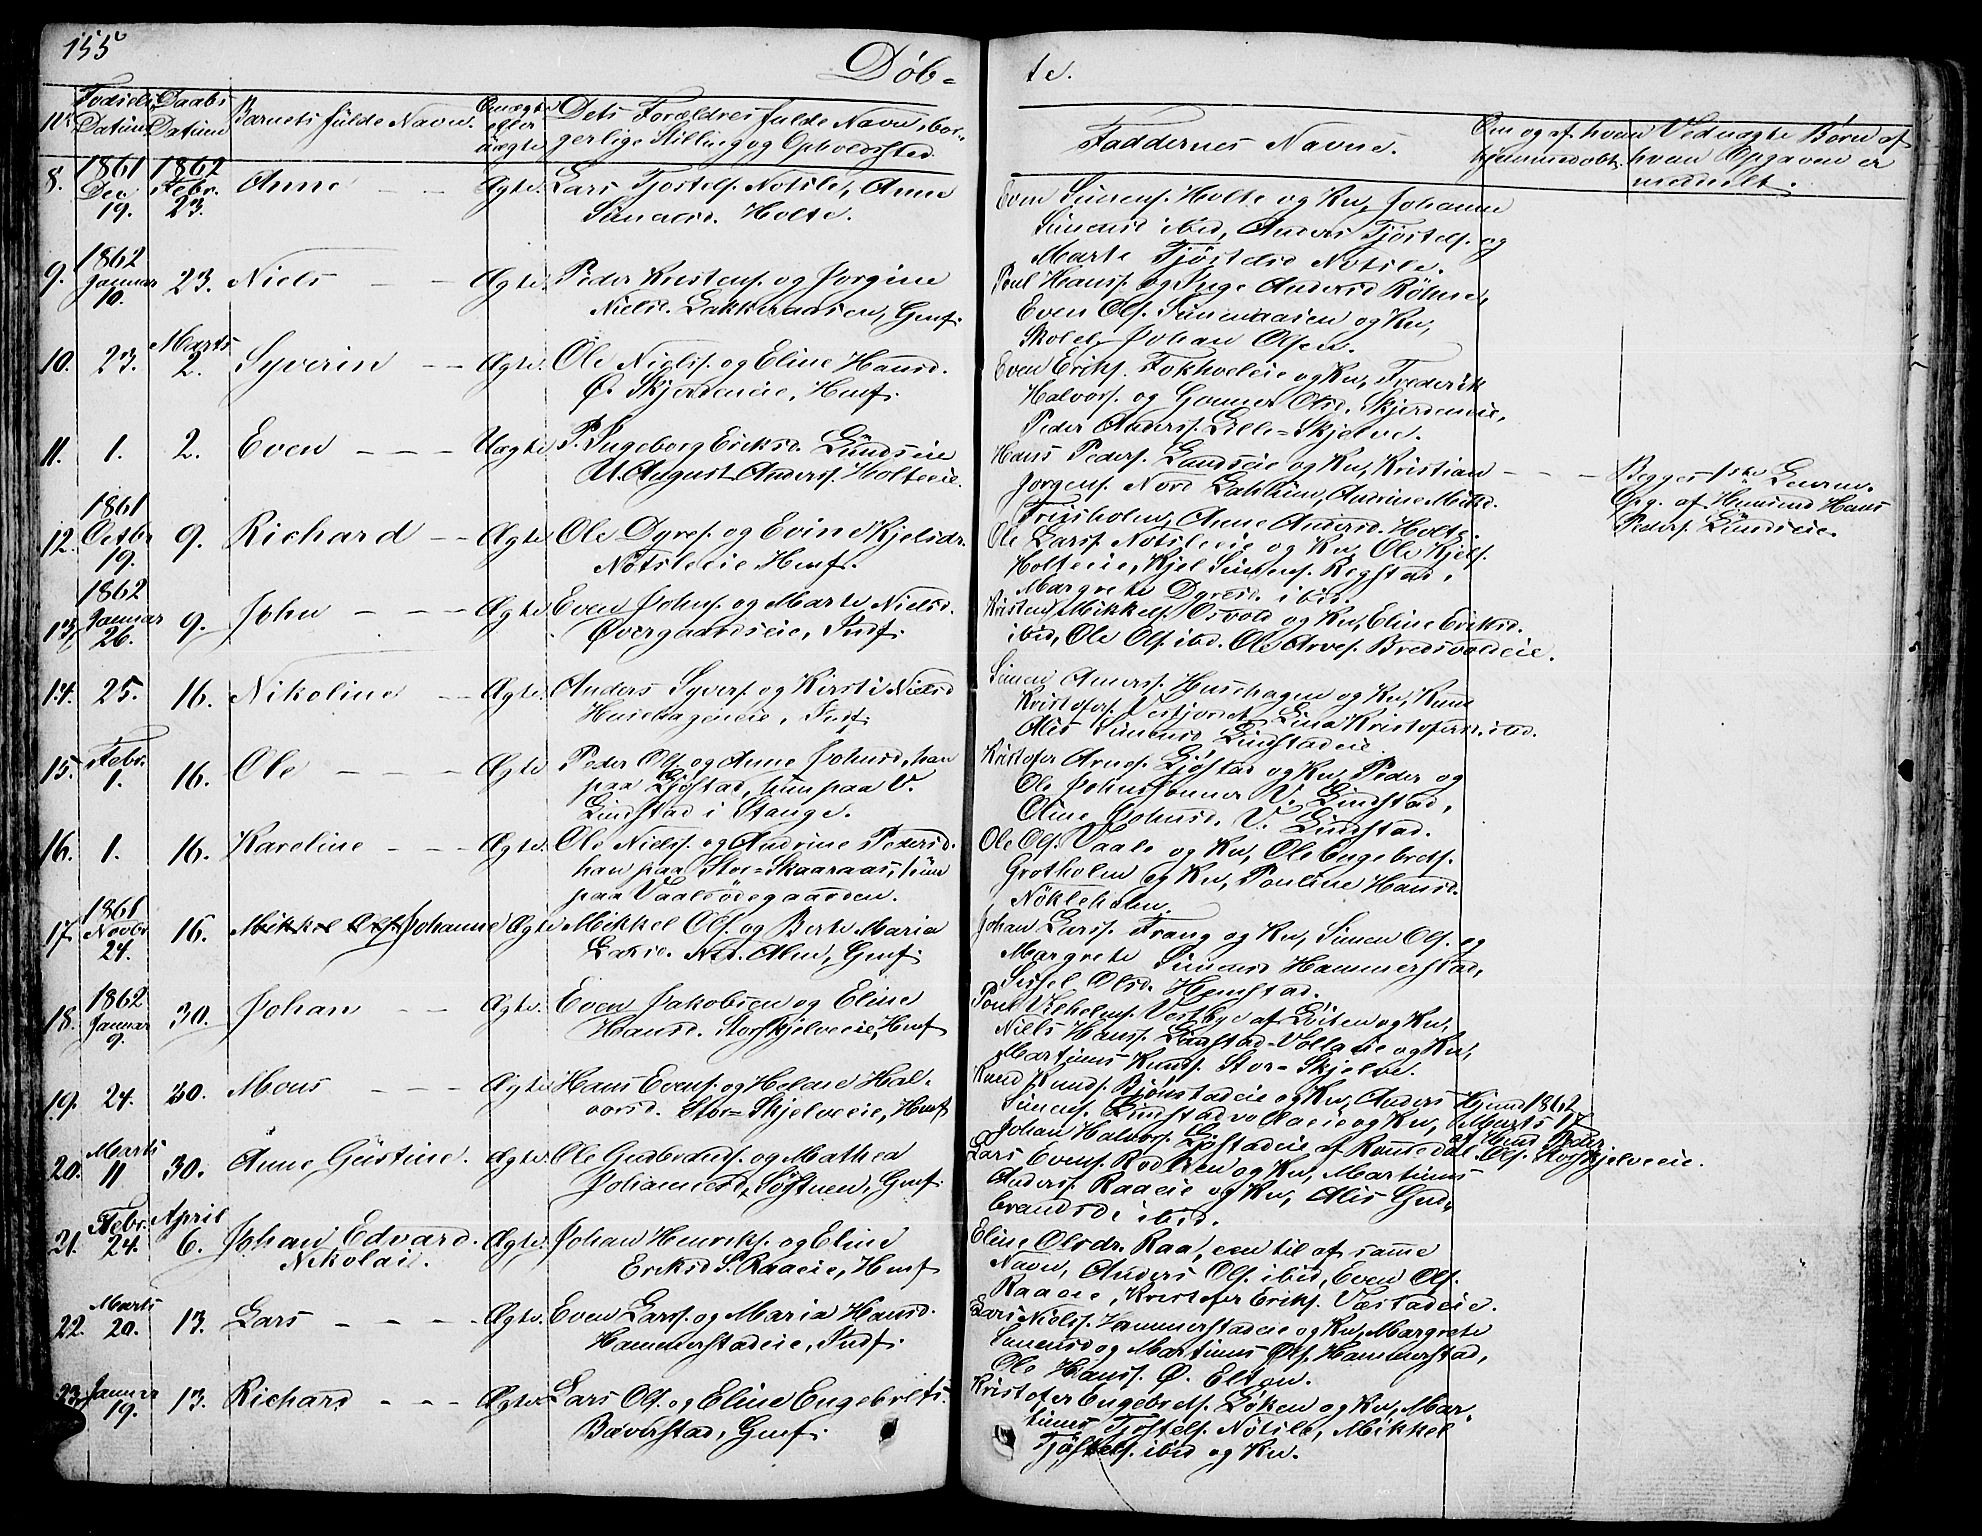 155
Døb=
te.
No.
Fødsels Datum
Daabs Datum
Barnets fulde Navn.
Om ægte eller uægte
Dets Forældres fulde Navn, bor-
gerlige Stilling og Opholdssted
Faddernes Navne.
Om og af hvem hjemmedøbt.
Ved uægte Børn af hvem Opgaven er meddelt.
8. 1861 Dec 19. 1862 Febr. 23. Anne — — Ægte. Lars Tjostels. Notsle, Anne
Simensd. Holte.
Even Simens. Holte og Kn, Johanne
Simensd ibid, Anders Tjøstels. og
Marte Tjøstelsd Notsle.
9. 1862 Januar 10. 23. Niels — — Ægte. Peder Kristens. og Jorgine
Nielsd. Bakkeraasen, Gmf.
Poul Hanss. og Inge Andersd Røhne,
Even Ols. Simenaasen og Kn,
Skolel. Johan Olsen.
10. 23. Marts 2. Syverin — — Ægte. Ole Nielss. og Eline Hansd.
Ø. Skjerdeneie, Hmf.
Even Eriks. Fokholeie og Kn, Frederik
Halvors. og Gonner Olsd. Skjerdeneie,
Peder Anderss. Lille=Skjelve.
11. 1. 2. Even — — — Uægte. P. Ingeborg Eriksd. Lundseie
U. August Anderss. Holteeie.
Hans Peders. Lundseie og Kn, Kristian
Jorgens. Nord Bakken, Andrine Mikkd.
Friisholm, Anne Andersd. Holte.
— — — Begges 1ste Leierm.
Opg. af Hmsmd Hans
Peders. Lundseie.
12. 1861 Octbr 19. 9. Richard — — Ægte. Ole Dyres. og Evine Kjelsdr.
Notsleeie Hmf.
Ole Larss. Notsleeie og Kn, Ole Kjels.
Holteeie, Kjel Simens. Regstad,
Margrete Dyresd. ibid.
13. 1862 Januar 26. 9. John — — — Ægte. Even Johns. og Marte Nielsd.
Øvergaardseie, Indf.
Kristen Mikkels. Osvold og Kn, Eline Eriksd.
ibid, Ole Ols. ibd. Ole Arves. Bredsvoldeie.
14. 25. 16. Nikoline — — Ægte. Anders Syvers. og Kirsti Nielsd
Husehageneie, Indf.
Simen Aners. Husehagen og Kn, Knut
Kristofers. Vestjordet, Lina Kristofersd. ibd.
Alis Simensd Lindstadeie.
15. Febr. 1. 16. Ole — — — Ægte. Peder Ols. og Anne Johnsd, han
paa Ljøstad, hun paa V.
Lindstad i Stange.
Kristofer Arnes. Ljøstad og Kn, Peder og
Ole Johnssønner V. Lindstad,
Oline Johnsd. V. Lindstad.
16. 1. 16. Karoline — — — Ægte. Ole Nielss. og Andrine Pedersd.
han paa Stor=Skaaraas, hun
paa Vaaleødegaarden.
Ole Ols. Vaale og Kn, Ole Engebrets.
Grotholm og Kn, Pouline Hansd.
Nøkleholm.
17. 1861 Novbr 24. 16. Mikkel Ols. Johanne Ægte Mikkel Ols. og Berte Maria
Larsd. Ned. Alm, Gmf.
Johan Larss. Frang og Kn, Simen Ols. og
Margrete Simensd Hammerstad,
Sissel Olsd. Hemstad.
18. 1862 Januar 9. 30. Johan — — Ægte. Even Jakobsen og Eline
Hansd. Storskjelveeie, Hmf
Poul Vilhelms. Vestbye af Løiten og Kn,
Niels Hanss. Lindstad-Volleie og Kn,
Martinus Knuds. Stor=Skjelve.
19. 24. 30. Mons — — — Ægte Hans Evens. og Helene Hal-
vorsd. Stor=Skjelveeie, Hmf
Knud Knuds. Bjønstadeie og Kn, Anders
Simens. Lindstadvollaeie og Kn,
Johan Halvors. Ljøstadeie af Romedal.
Hjemd 1862
Marts 17
af Hmd Peder
Ols. Storskjelveeie.
20. Marts 11 30. Anne Gustine. Ægte. Ole Gudbrands. og Mathea
Johannesd, Søstuen, Gmf.
Lars Evens. Rodbken og Kn, Martinus
Anders. Raaeie og Kn, Alis Gud-
brandsd. ibid.
21. Febr. 24. April 6. Johan Edvard
Nikolai. Ægte. Johan Henriks. og Eline
Eriksd S. Raaeie, Hmf
Eline Olsdr. Raa, een til af samme
Navn, Anders Ols. ibid, Even Ols.
Raaeie, Kristofer Eriks. Væstadeie.
22. Marts 20. 13. Lars — — — Ægte. Even Larss. og Maria Hansd.
Hammerstadeie, Indf.
Lars Nielss. Hammerstadeie og Kn, Margrete
Simensd og Martinus Ols. Hammerstad,
Ole Hanss. Ø. Elton.
23. Januar 19. 13. Richard — — — Ægte. Lars Ols. og Eline Engebrets.
Bæverstad, Gmf.
Kristofer Engebrets. Løken og Kn, Mar-
tinus Tjøstels. Nötsle, Mikkel
Tjøstels. ibid og Kn.